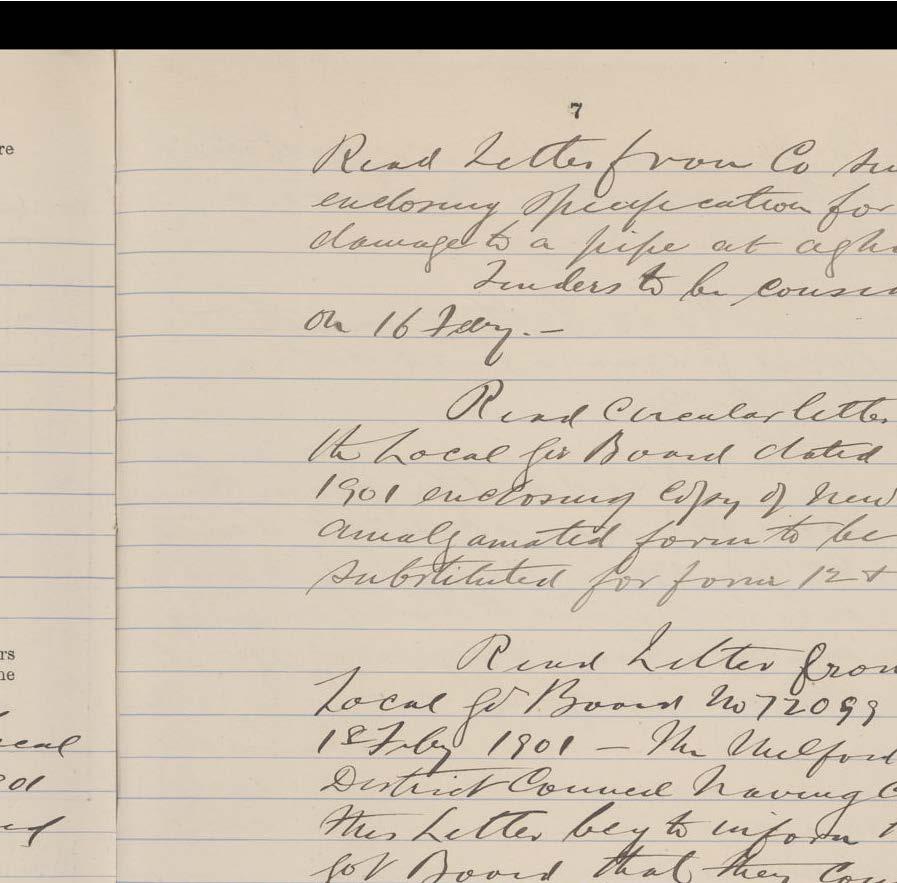 re
rs
ne
eal
901
7
Read Letter from Co Su
enclosing Specification for
damage to a pipe at agh
Tenders to be consi
on 16 Feby.–
Read Circular letter
the Local Gov Board dated
1901 enclosing Copy of new
amalgamated form to be
substituted for form 12 &
Read Letter from
Local Gov Board No 72099
1st Feby 1901 – The Milford
District Council having C
this Letter beg to inform
Gov Board that they Cou